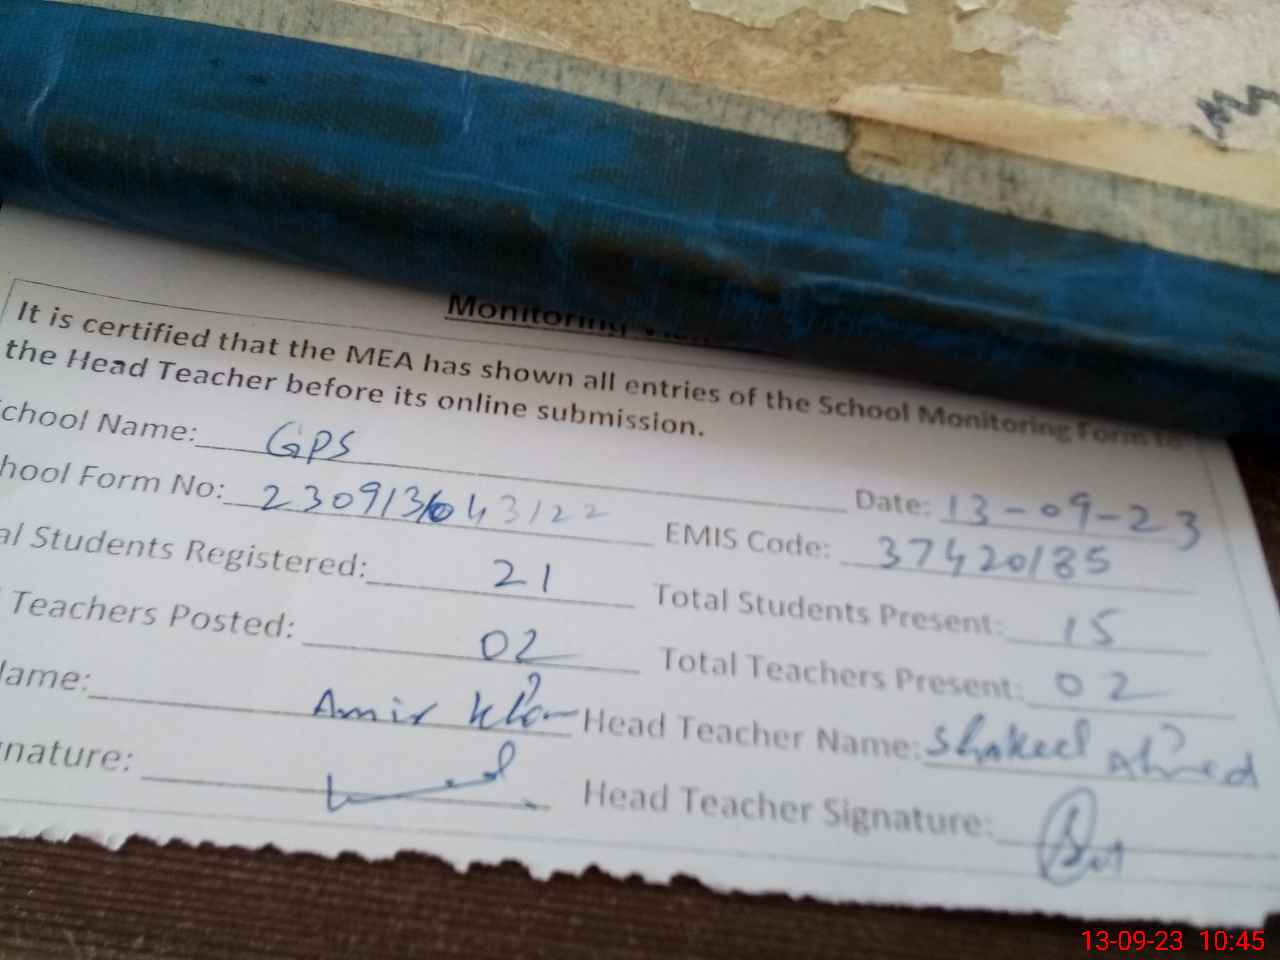 Monitoring
It is certified that the MEA has shown all entries of the School Monitoring Form to
the Head Teacher before its online submission.
chool Name: GPS
Date: 13-09-23
hool Form No: 230913043122
EMIS Code: 37420185
al Students Registered: 21
Total Students Present: 15
Teachers Posted: 02
Total Teachers Present: 02
ame: Amir Khan
Head Teacher Name: Shakeel Ahmed
nature:
Head Teacher Signature:
13-09-23 10:45